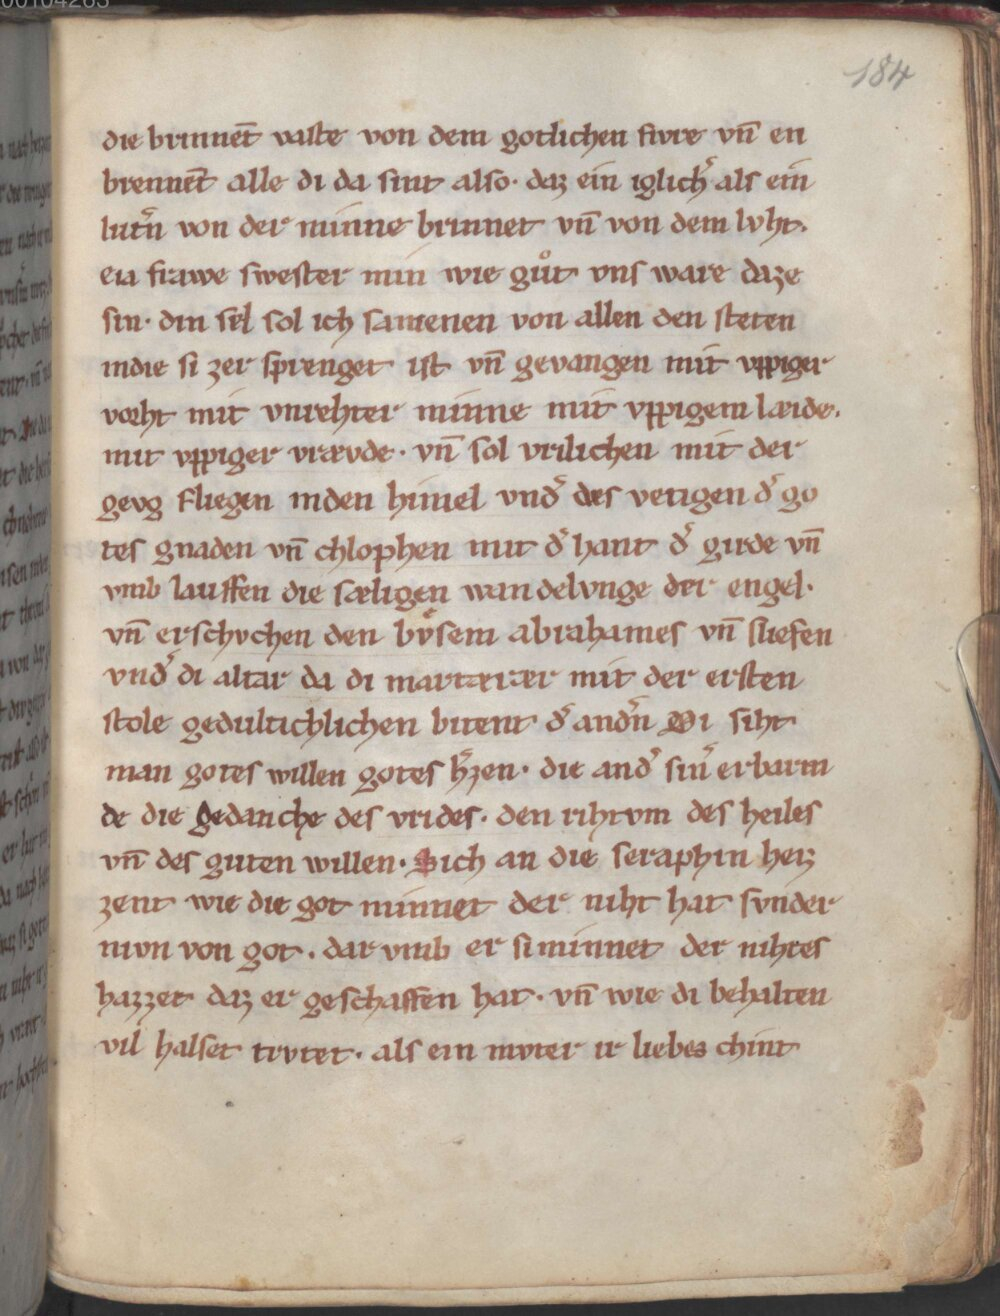 184
die brinnēt vaste von dem gotlichen fivre vn̄ en
brennēt alle di da sint also· daz ein iglich̓ als ein
lut̓n von der minne brinnet vn̄ von dem lvht.
eia frawe swester min wie gůt vns ware daze
sin· din sel sol ich samenen von allen den steten
indie si zer sprenget ist vn̄ gevangen mit vppiger
vorht mit vnrehter minne mit vppigem laide.
mit vppiger vrævde· vn̄ sol vrilichen mit der
gevg fliegen inden himel vnd̓ des vetigen d̓ go
tes gnaden vn̄ chlophen mit d̓ hant d̓ girde vn̄
vmb lauffen die sæligen wandelvnge der engel·
vn̄ erschvchen den bvͦsem abrahames vn̄ sliefen
vnd̓ di altar da di martærær mit der ersten
stole gedultichlichen bitent d̓ and̓n Di siht
man gotes willen gotes h̓zen· die and̓ sin̓ erbarm
de die gedanche des vrides· den rihtvm des heiles
vn̄ des guten willen· Sich an die seraphin herz
zent wie die got minnet der niht hat svnder
nivn von got· dar vmb er si minnet der nihtes
hazzet daz er geschaffen hat· vn̄ wie di behalten
vil halset trvtet· als ein mvter ir liebes chint